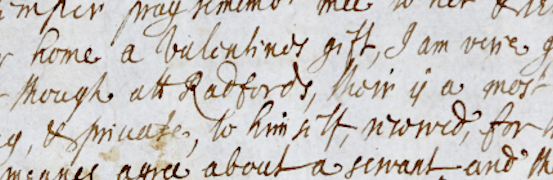 pray rememb mee to her &
home a valentines gift, I am verie g
though att Radfords, their is a mos
& private, to him self, reserved, for
meanes agree about a servant, and th